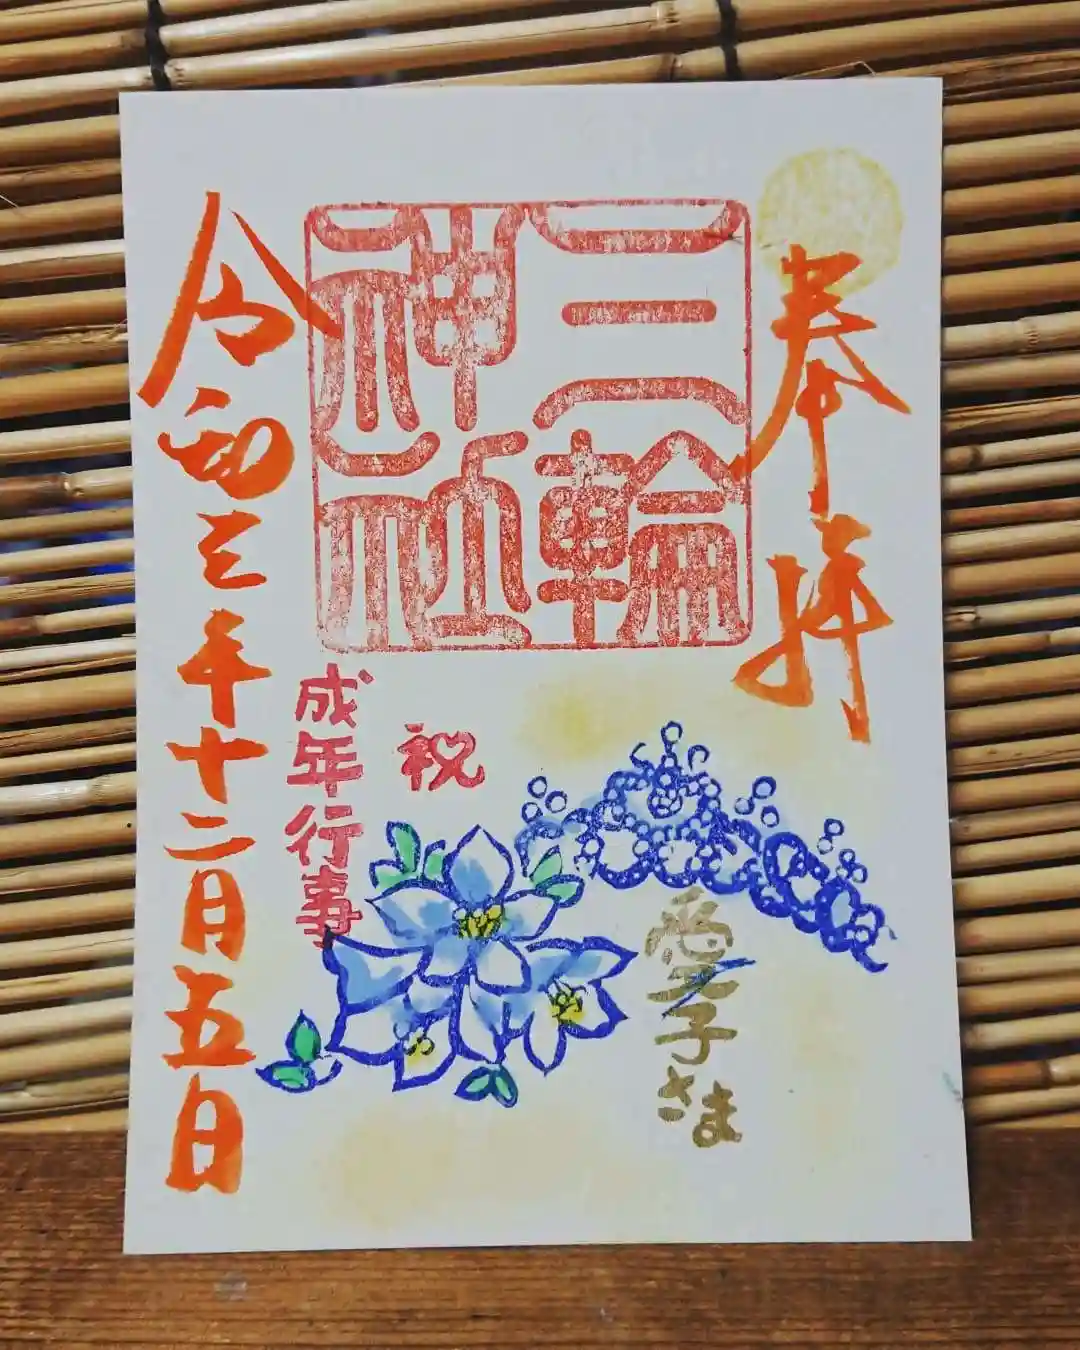 奉拝
三輪
神社
愛子さま
祝
成年行事
令和三年十二月五日